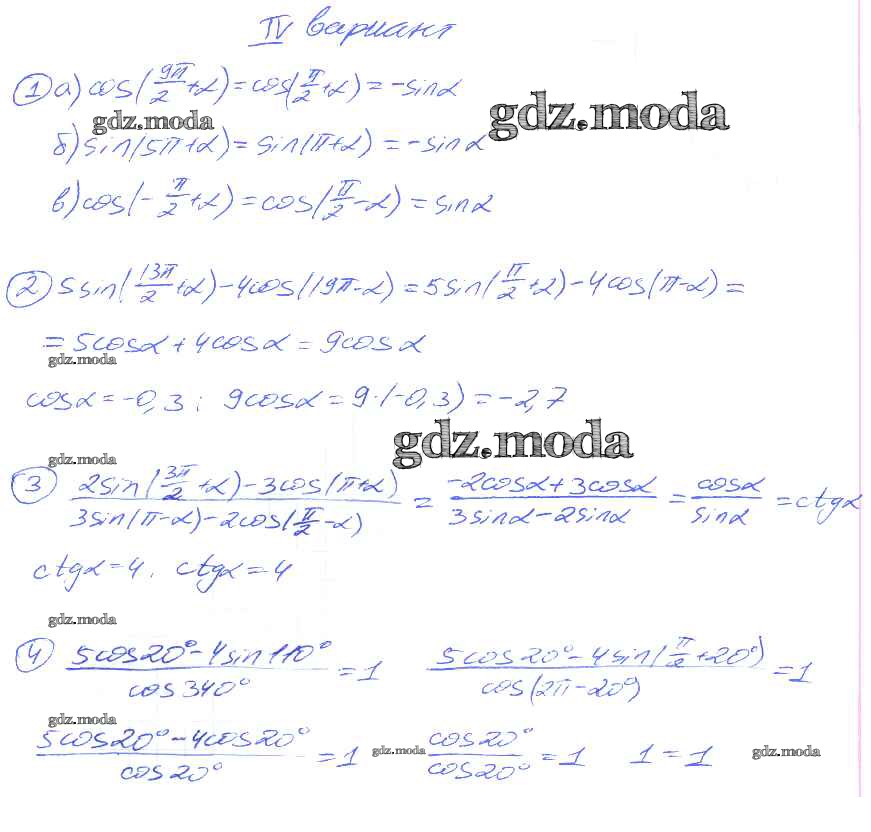 IV вариант
① а) cos(9π/2+α)=cos(π/2+α)=-sinα
gdz.moda gdz.moda
б) sin(5π+α)=sin(π+α)=-sinα
в) cos(-π/2+α)=cos(π/2-α)=sinα
② 5sin(13π/2+α)-4cos(19π-α)=5sin(π/2+α)-4cos(π-α)=
=5cosα+4cosα=9cosα
gdz.moda
cosα=-0,3; 9cosα=9·(-0,3)=-2,7
gdz.moda
gdz.moda
③ (2sin(3π/2+α)-3cos(π+α))/(3sin(π-α)-2cos(π/2-α)) = (-2cosα+3cosα)/(3sinα-2sinα) = cosα/sinα = ctgα
ctgα=4, ctgα=4
gdz.moda
④ (5cos20°-4sin110°)/cos340° = 1 (5cos20°-4sin(π/2+20°))/cos(2π-20°) = 1
gdz.moda
(5cos20°-4cos20°)/cos20° = 1 gdz.moda cos20°/cos20° = 1 1=1 gdz.moda